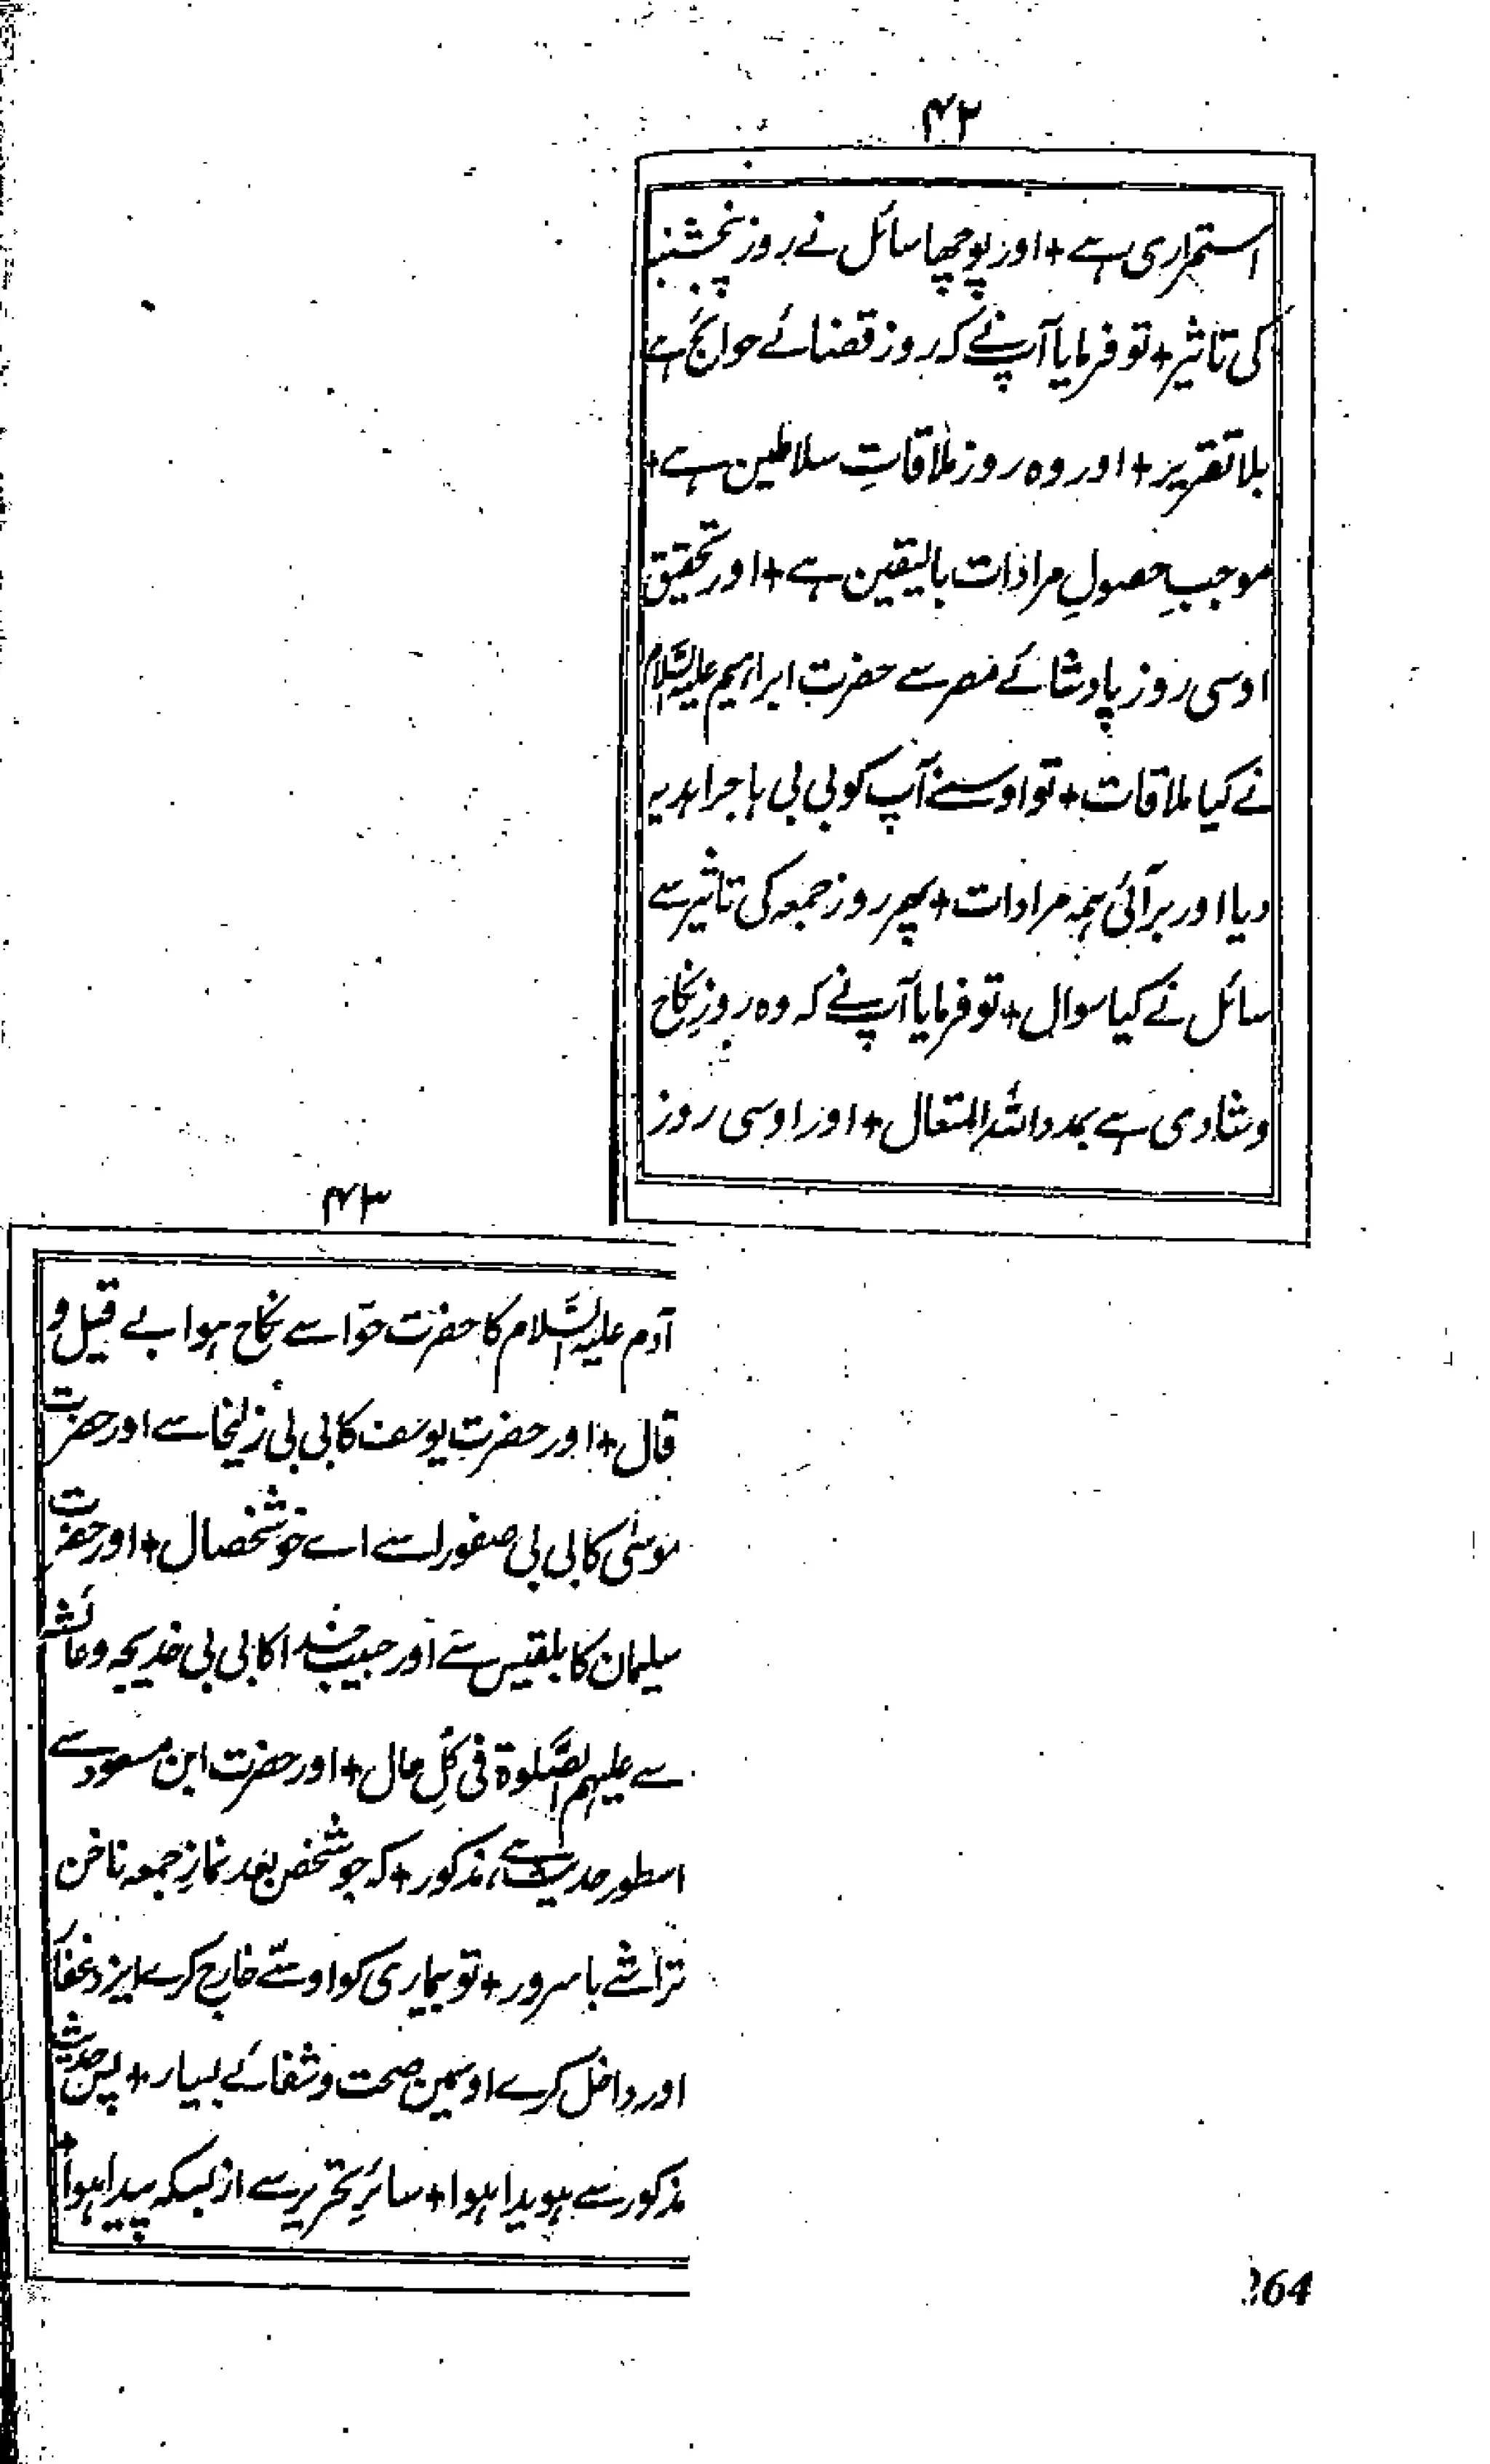 ۴۲
استمراری ہے + اور پوچھا سائل نے روز پنجشنبہ
کی تاثیر + تو فرمایا آپنے کہ روز قضائے حوائج ہے
بلا تقریر + اور وہ روز ملاقاتِ سلاطین ہے +
موجبِ حصولِ مرادات بالیقین ہے + اور تحقیق
اوسی روز پادشائے مصر سے حضرت ابراہیم علیہ السّلام
نے کیا ملاقات + تو اوسنے آپ کو بی بی ہاجرا ہدیہ
دیا اور برآئی ہمہ مرادات + پھر روز جمعہ کی تاثیر سے
سائل نے کیا سوال + تو فرمایا آپنے کہ وہ روزِ نکاح
و شادی ہے بمدد اللہ المتعال + اور اوسی روز
۴۳
آدم علیہ السّلام کا حضرت حوّا سے نکاح ہوا بے قیل و
قال + اور حضرت یوسف کا بی بی زلیخا سے اور حضرت
موسیٰ کا بی بی صفورا سے اے خوشخصال + اور حضرت
سلیمان کا بلقیس سے اور حبیب خدا کا بی بی خدیجہ و عائشہ
سے علیہم الصّلوٰة فی کُلِّ حال + اور حضرت ابن مسعود سے
اسطور حدیث ہے مذکور + کہ جو شخص بعد نمازِ جمعہ ناخن
تراشے با سرور + تو بیماری کو اوسّے خارج کرے ایزد غفار
اور داخل کرے اوسمین صحت و شفائے بسیار + پس حدیث
مذکور سے ہویدا ہوا + سائرِ تحریر سے ازبسکہ پیدا ہوا +
264